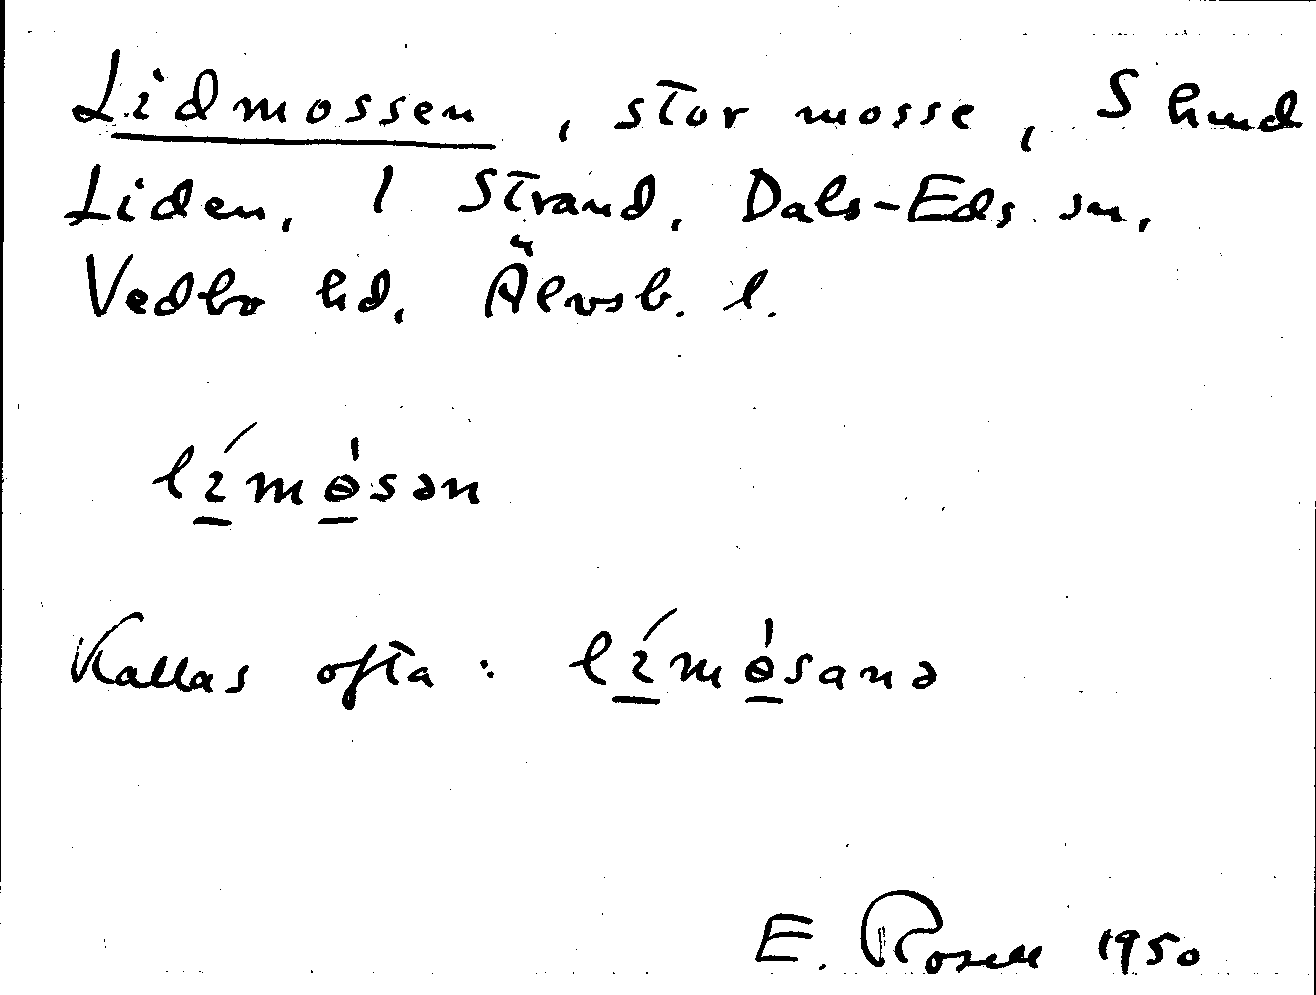 Lidmossen, stor mosse, S hmd
Liden, 1 Strand, Dals-Eds sn,
Vedbo hd, Älvsb. l.
límɵ̀sən
Kallas ofta: límɵ̀sanə
E. Rosell 1950